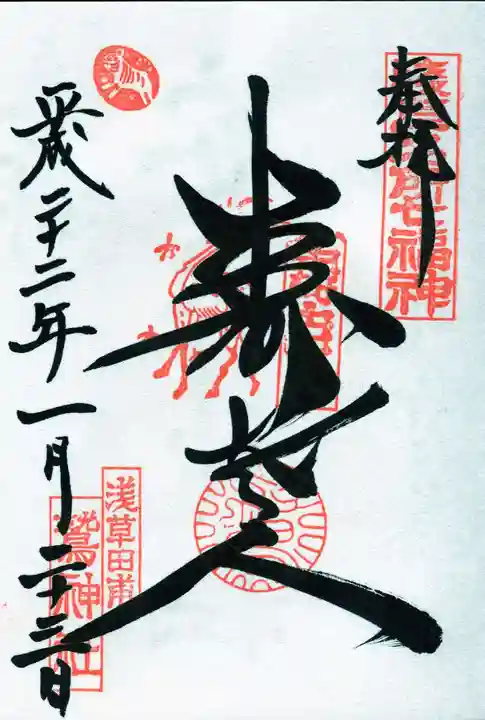 奉拝
浅草名所七福神
寿老人
平成二十二年一月二十三日
浅草田甫
鷲神社